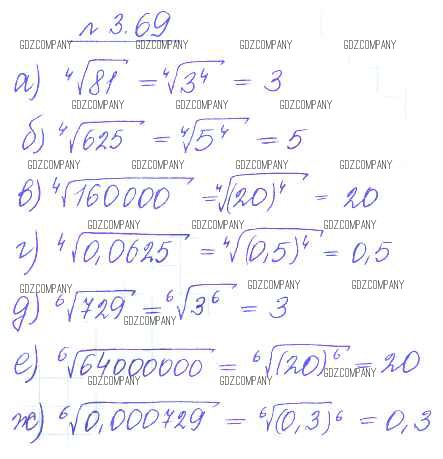 № 3.69
GDZCOMPANY GDZCOMPANY GDZCOMPANY GDZCOMPANY
а) ⁴√81 = ⁴√3⁴ = 3
GDZCOMPANY GDZCOMPANY GDZCOMPANY
б) ⁴√625 = ⁴√5⁴ = 5
GDZCOMPANY GDZCOMPANY GDZCOMPANY GDZCOMPANY
в) ⁴√160000 = ⁴√(20)⁴ = 20
GDZCOMPANY GDZCOMPANY GDZCOMPANY
г) ⁴√0,0625 = ⁴√(0,5)⁴ = 0,5
GDZCOMPANY GDZCOMPANY GDZCOMPANY GDZCOMPANY
д) ⁶√729 = ⁶√3⁶ = 3
GDZCOMPANY
е) ⁶√64000000 = ⁶√(20)⁶ = 20
GDZCOMPANY GDZCOMPANY GDZCOMPANY
ж) ⁶√0,000729 = ⁶√(0,3)⁶ = 0,3